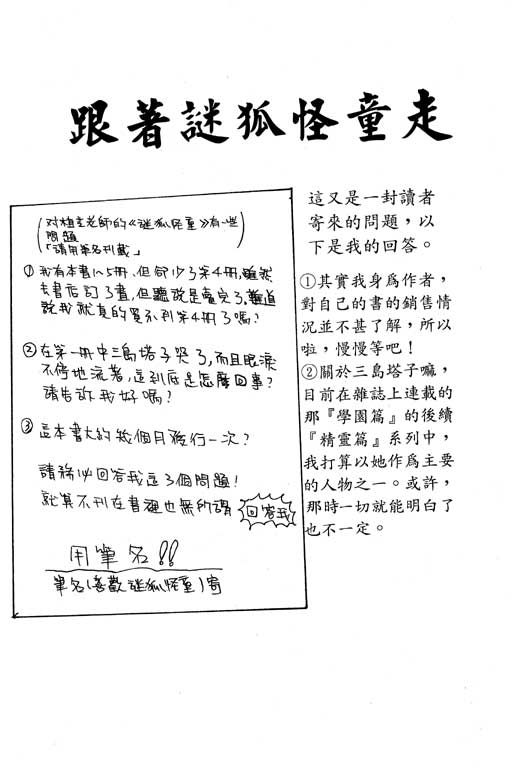 跟著謎狐怪童走
(对植芝老師的《謎狐怪童》有一些
問題
「請用筆名刊載」)
①我有本書1~5冊,但卻少了第4冊,雖然
去書店訂了書,但聽說是賣完了,難道
說我就真的買不到第4冊了嗎?
②在第一冊中三島塔子哭了,而且眼淚
不停地流著,這到底是怎麼回事?
請告訴我好嗎?
③這本書大約幾個月發行一次?
請務必回答我這3個問題!
就算不刊在書裡也無所謂
回答我
用筆名!!
筆名(喜歡謎狐怪童)寄
這又是一封讀者
寄來的問題,以
下是我的回答。
①其實我身爲作者,
對自己的書的銷售情
況並不甚了解,所以
啦,慢慢等吧!
②關於三島塔子嘛,
目前在雜誌上連載的
那『學園篇』的後續
『精靈篇』系列中,
我打算以她作爲主要
的人物之一。或許,
那時一切就能明白了
也不一定。